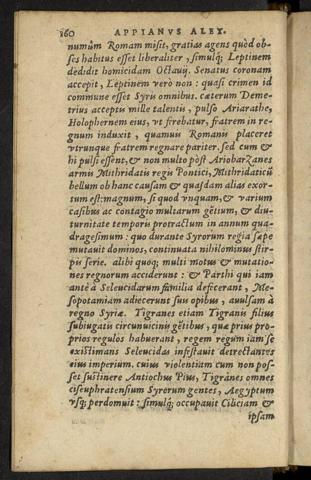 160 APPIANVS ALEX.
numũm Romam misit, gratias agens quòd ob-
ses habitus esset liberaliter, simulq; Leptinem
dedidit homicidam Octauij. Senatus coronam
accepit, Leptinem verò non: quasi crimen id
commune esset Syris omnibus. cæterum Deme-
trius acceptis mille talentis, pulso Ariarathe,
Holophernem eius, vt ferebatur, fratrem in re-
gnum induxit, quamuis Romanis placeret
vtrunque fratrem regnare pariter. sed cum &
hi pulsi essent, & non multo pòst Ariobarzanes
armis Mithridatis regis Pontici, Mithridaticũ
bellum ob hanc causam & quasdam alias exor-
tum est: magnum, si quod vnquam, & varium
casibus ac contagio multarum gẽtium, & diu-
turnitate temporis protractum in annum qua-
dragesimum: quo durante Syrorum regia sæpe
mutauit dominos, continuata nihilominus stir-
pis serie. alibi quoq; multi motus & mutatio-
nes regnorum acciderunt: & Parthi qui iam
antè à Seleucidarum familia defecerant, Me-
sopotamiam adiecerunt suis opibus, auulsam à
regno Syriæ. Tigranes etiam Tigranis filius
subiugatis circunuicinis gẽtibus, quæ prius pro-
prios regulos habuerant, regem regum iam se
existimans Seleucidas infestauit detrectantes
eius imperium. cuius violentiam cum non pos-
set sustinere Antiochus Pius, Tigranes omnes
ciseuphratensium Syrorum gentes, Aegyptum
vsq; perdomuit: simulq; occupauit Ciliciam &
ipsam